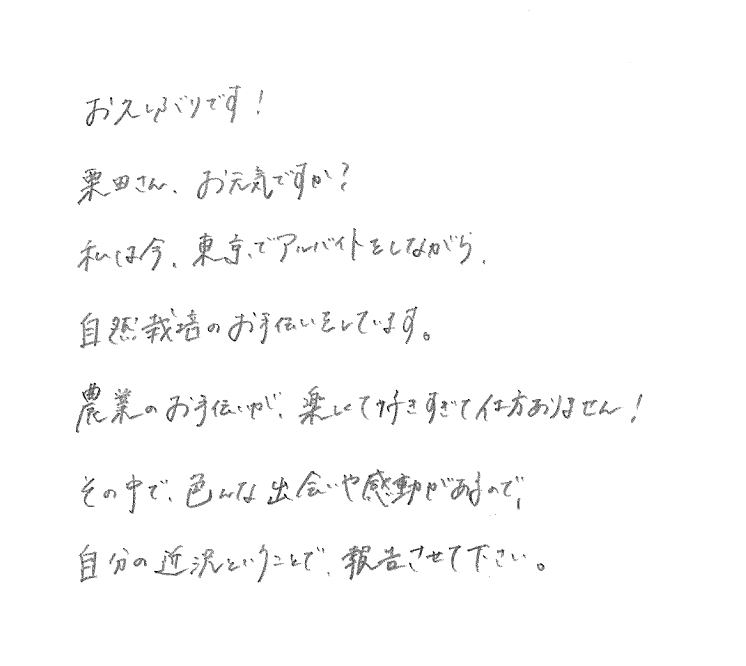 お久しぶりです!
栗田さん、お元気ですか?
私は今、東京でアルバイトをしながら、
自然栽培のお手伝いをしています。
農業のお手伝いが、楽しくて好きすぎて仕方ありません!
その中で、色んな出会いや感動があるので、
自分の近況ということで、報告させて下さい。